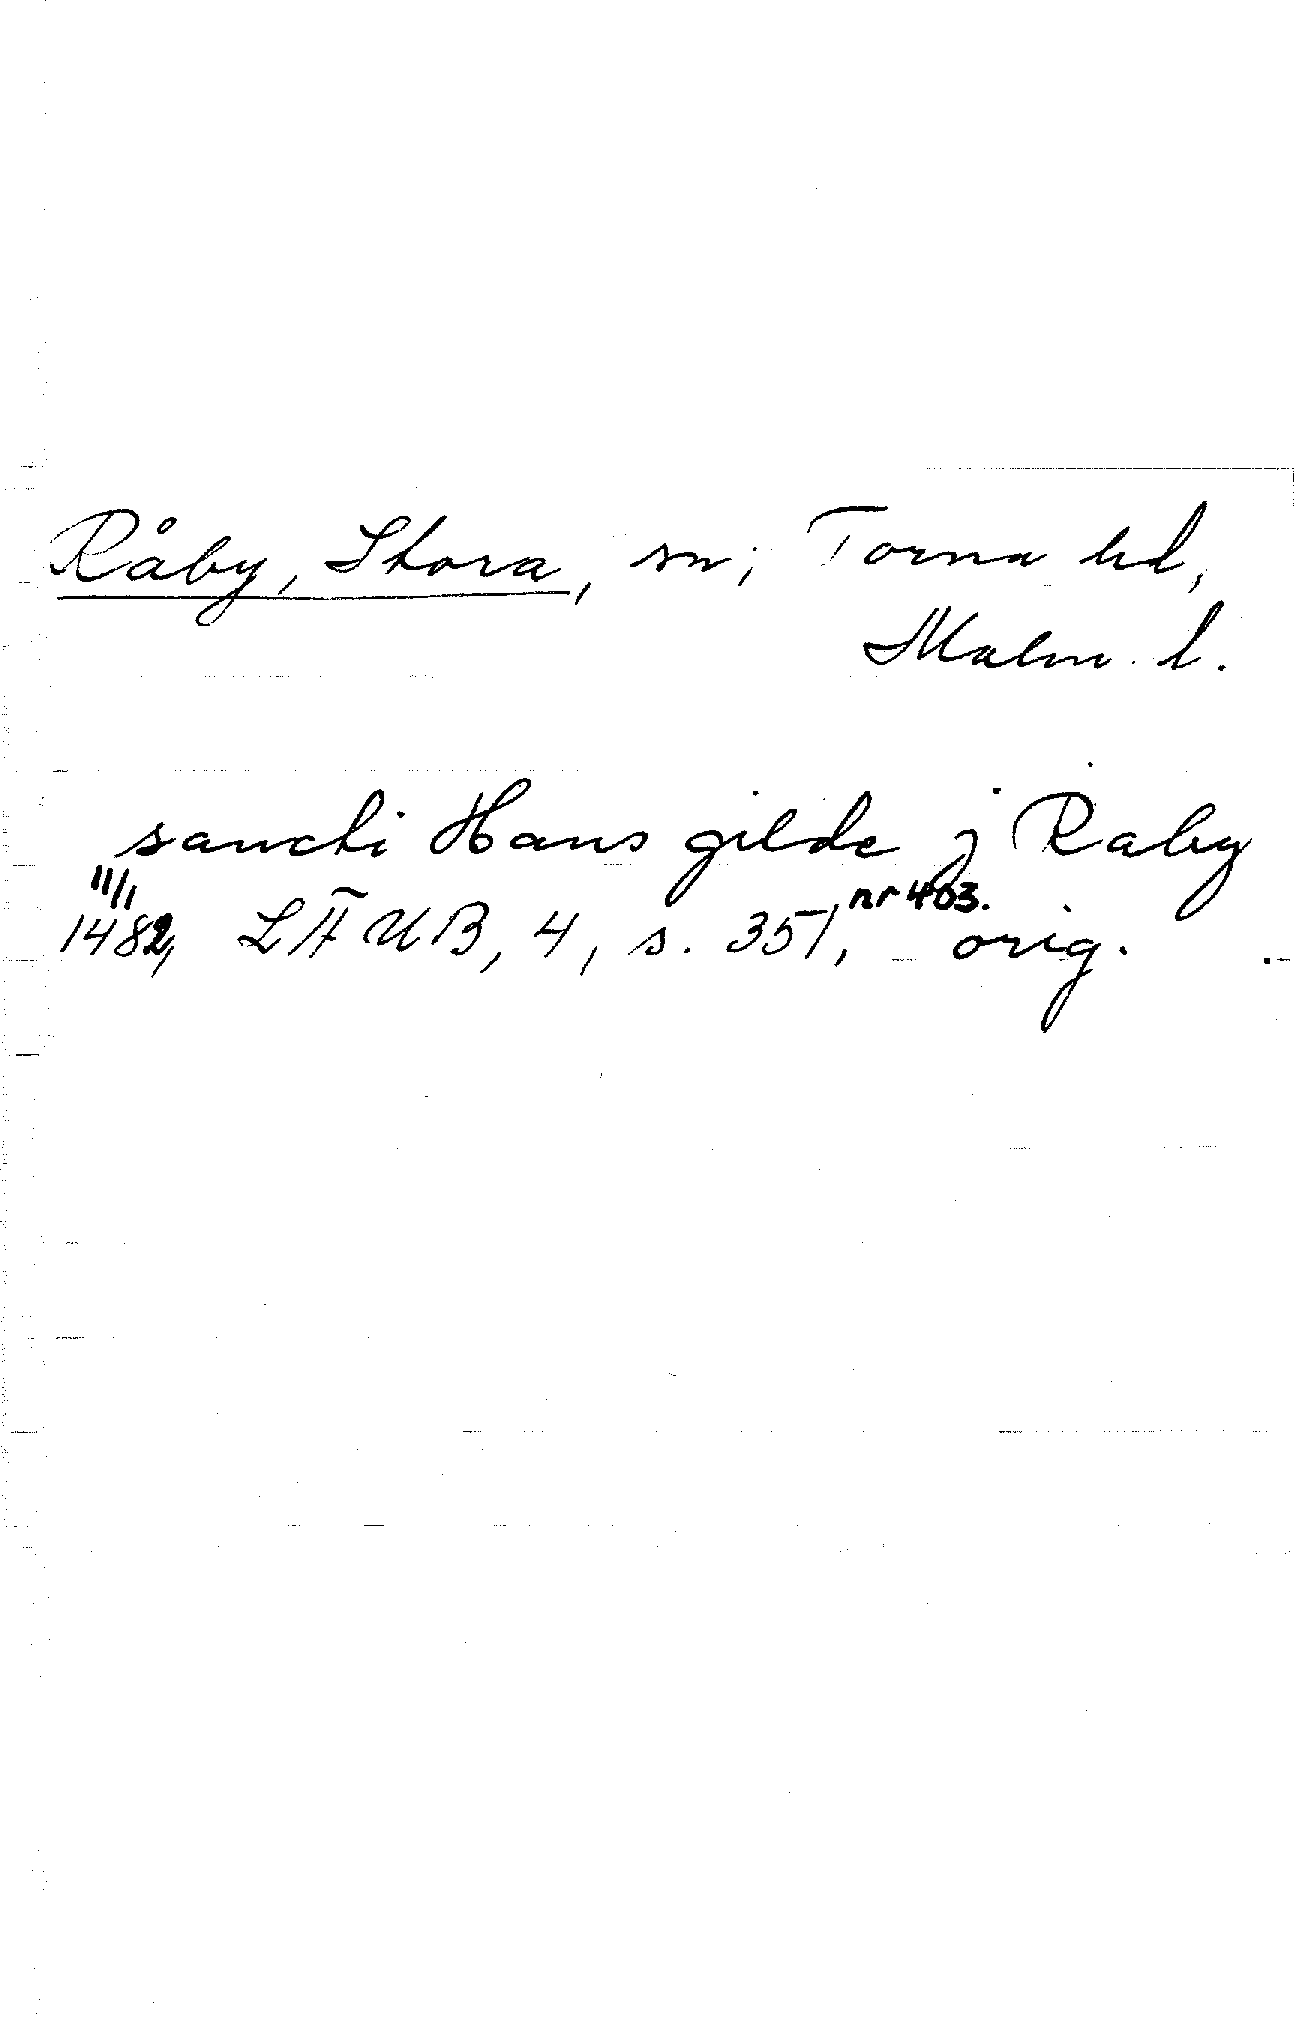 Råby, Stora, sn; Torna hd,
Malm. l.
sancti Hans gilde j Raby
11/1
1482, LÄUB, 4, s. 351, nr 403. orig.